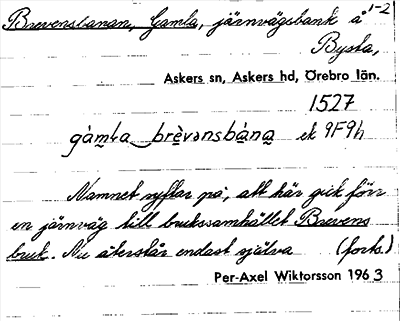 Brevensbanan, Gamla, järnvägsbank å 1-2
Bysta,
Askers sn, Askers hd, Örebro län.
1527
gàmla brèvənsbàna ek 9F9h
Namnet syftar på, att här gick förr
en järnväg till brukssamhället Brevens
bruk. Nu återstår endast själva (forts.)
Per-Axel Wiktorsson 1963